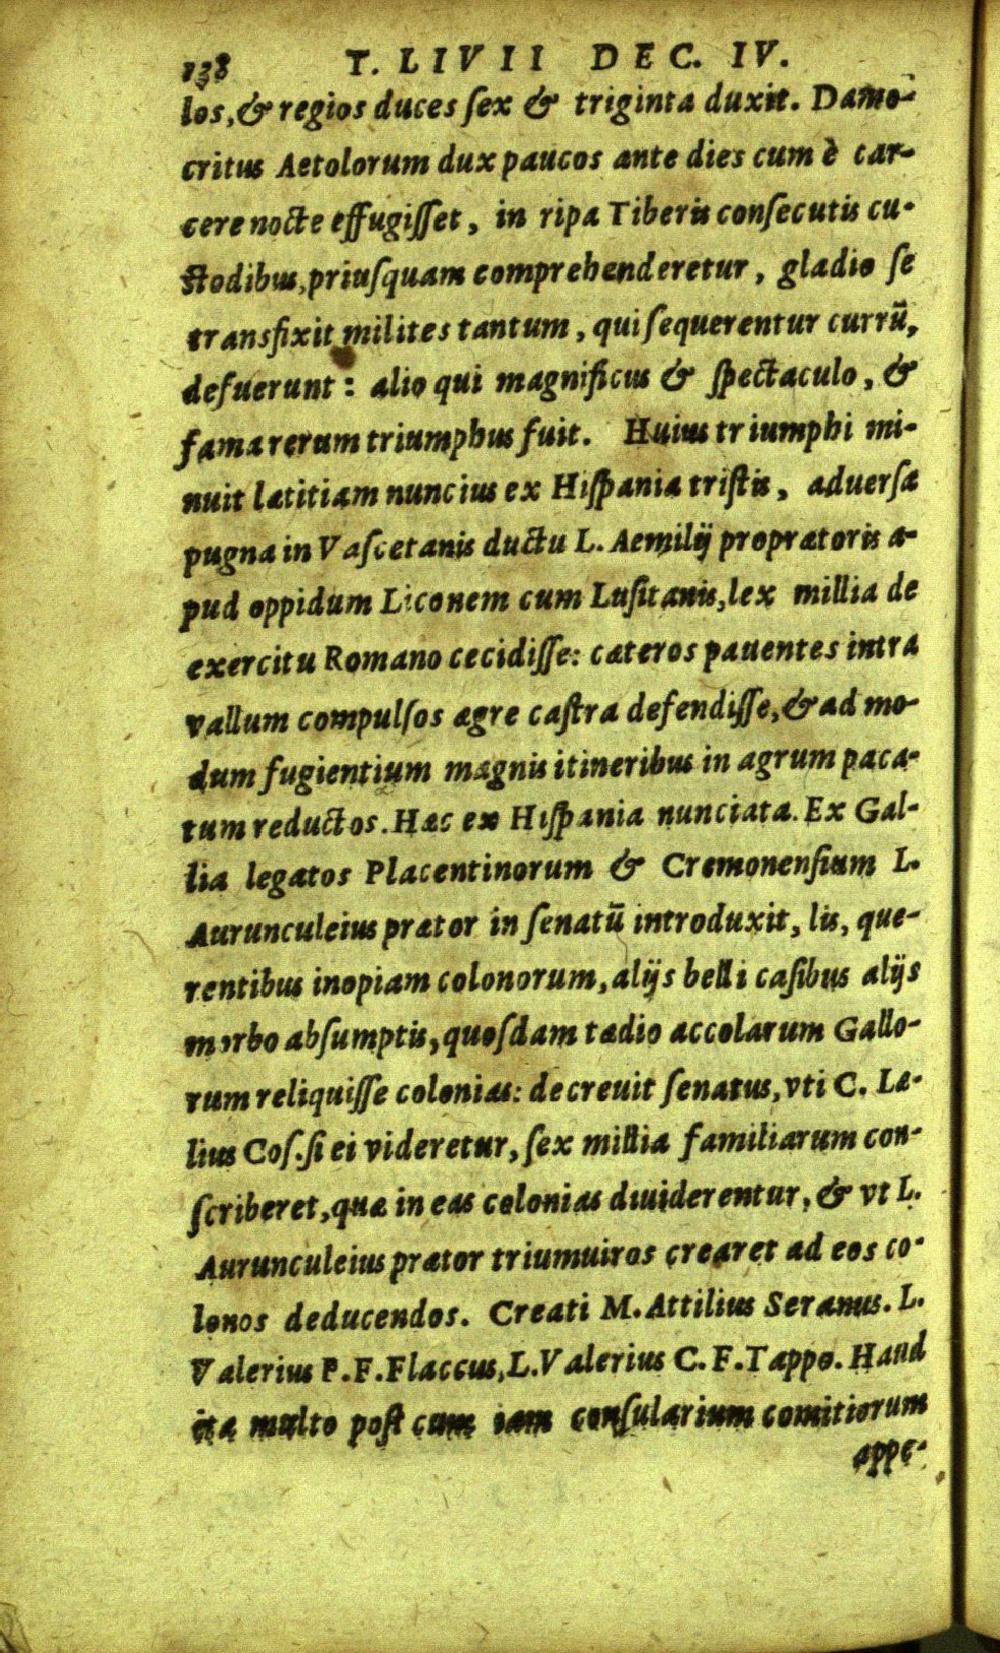 138 T. LIVII DEC. IV.
los, & regios duces ſex & triginta duxit. Damo-
critus Aetolorum dux paucos ante dies cum è car-
cere nocte effugiſſet, in ripa Tiberis conſecutis cu-
ſtodibus, priuſquam comprehenderetur, gladio ſe
transfixit milites tantum, qui ſequerentur currū,
defuerunt: alio qui magnificus & ſpectaculo, &
fama rerum triumphus fuit. Huius triumphi mi-
nuit lætitiam nuncius ex Hiſpania triſtis, aduerſa
pugna in Vaſcetanis ductu L. Aemilij proprætoris a-
pud oppidum Liconem cum Luſitanis, lex millia de
exercitu Romano cecidiſſe: cæteros pauentes intra
vallum compulſos ægre caſtra defendiſſe, & ad mo-
dum fugientium magnis itineribus in agrum paca-
tum reductos. Hæc ex Hiſpania nunciata. Ex Gal-
lia legatos Placentinorum & Cremonenſium L.
Aurunculeius prætor in ſenatū introduxit, Iis, que-
rentibus inopiam colonorum, alijs belli caſibus alijs
morbo abſumptis, quoſdam tædio accolarum Gallo-
rum reliquiſſe colonias: decreuit ſenatus, vti C. Læ-
lius Coſ. ſi ei videretur, ſex millia familiarum con-
ſcriberet, quæ in eas colonias diuiderentur, & vt L.
Aurunculeius prætor triumuiros crearet ad eos co-
lonos deducendos. Creati M. Attilius Seranus. L.
Valerius P. F. Flaccus, L. Valerius C. F. Tappo. Haud
ita multo poſt cum iam conſularium comitiorum
appe-